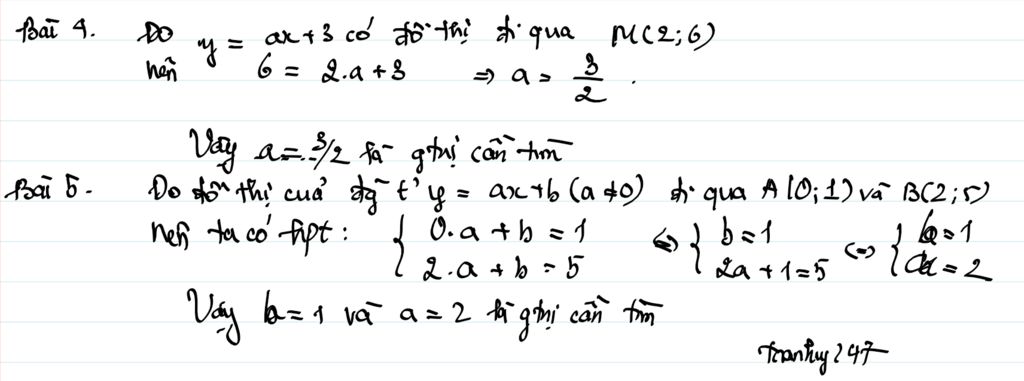 Bài 4. Do y = ax+3 có đồ thị đi qua M(2;6)
nên 6 = 2.a+3 => a = 3/2.
Vậy a = 3/2 là gtrị cần tìm
Bài 5. Do đồ thị của đg t' y = ax+b (a≠0) đi qua A(0;1) và B(2;5)
nên ta có hpt: { 0.a + b = 1 <=> { b = 1 <=> { b = 1
2.a + b = 5 2a + 1 = 5 a = 2
Vậy b = 1 và a = 2 là gtrị cần tìm
tranhuy247